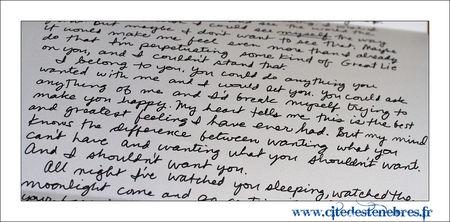 now. But maybe I could see
it would make me feel even more than I already
do that I'm perpetuating some kind of Great Lie
on you, and I couldn't stand that
I belong to you. You could do anything you
wanted with me and I would let you. You could ask
anything of me and I'd break myself trying to
make you happy. My heart tells me this is the best
and greatest feeling I have ever had. But my mind
knows the difference between wanting what you
can't have and wanting what you shouldn't want.
And I shouldn't want you.
All night I've watched you sleeping, watched the
moonlight come and go
www.citedestenebres.fr